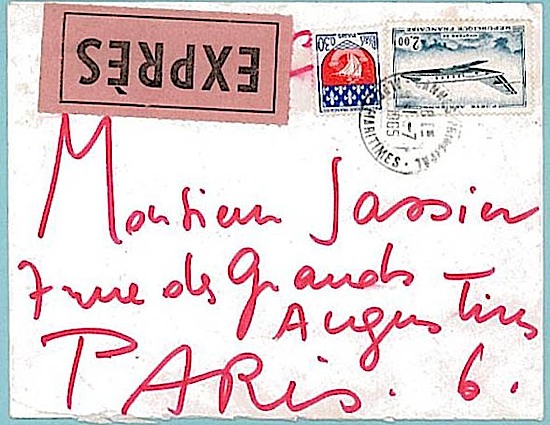 EXPRÈS
0.30
PARIS
2.00
REPUBLIQUE FRANÇAISE
MARITIMES
1965
Monsieur Sassier
7 rue des Grands
Augustins
PARIS. 6.